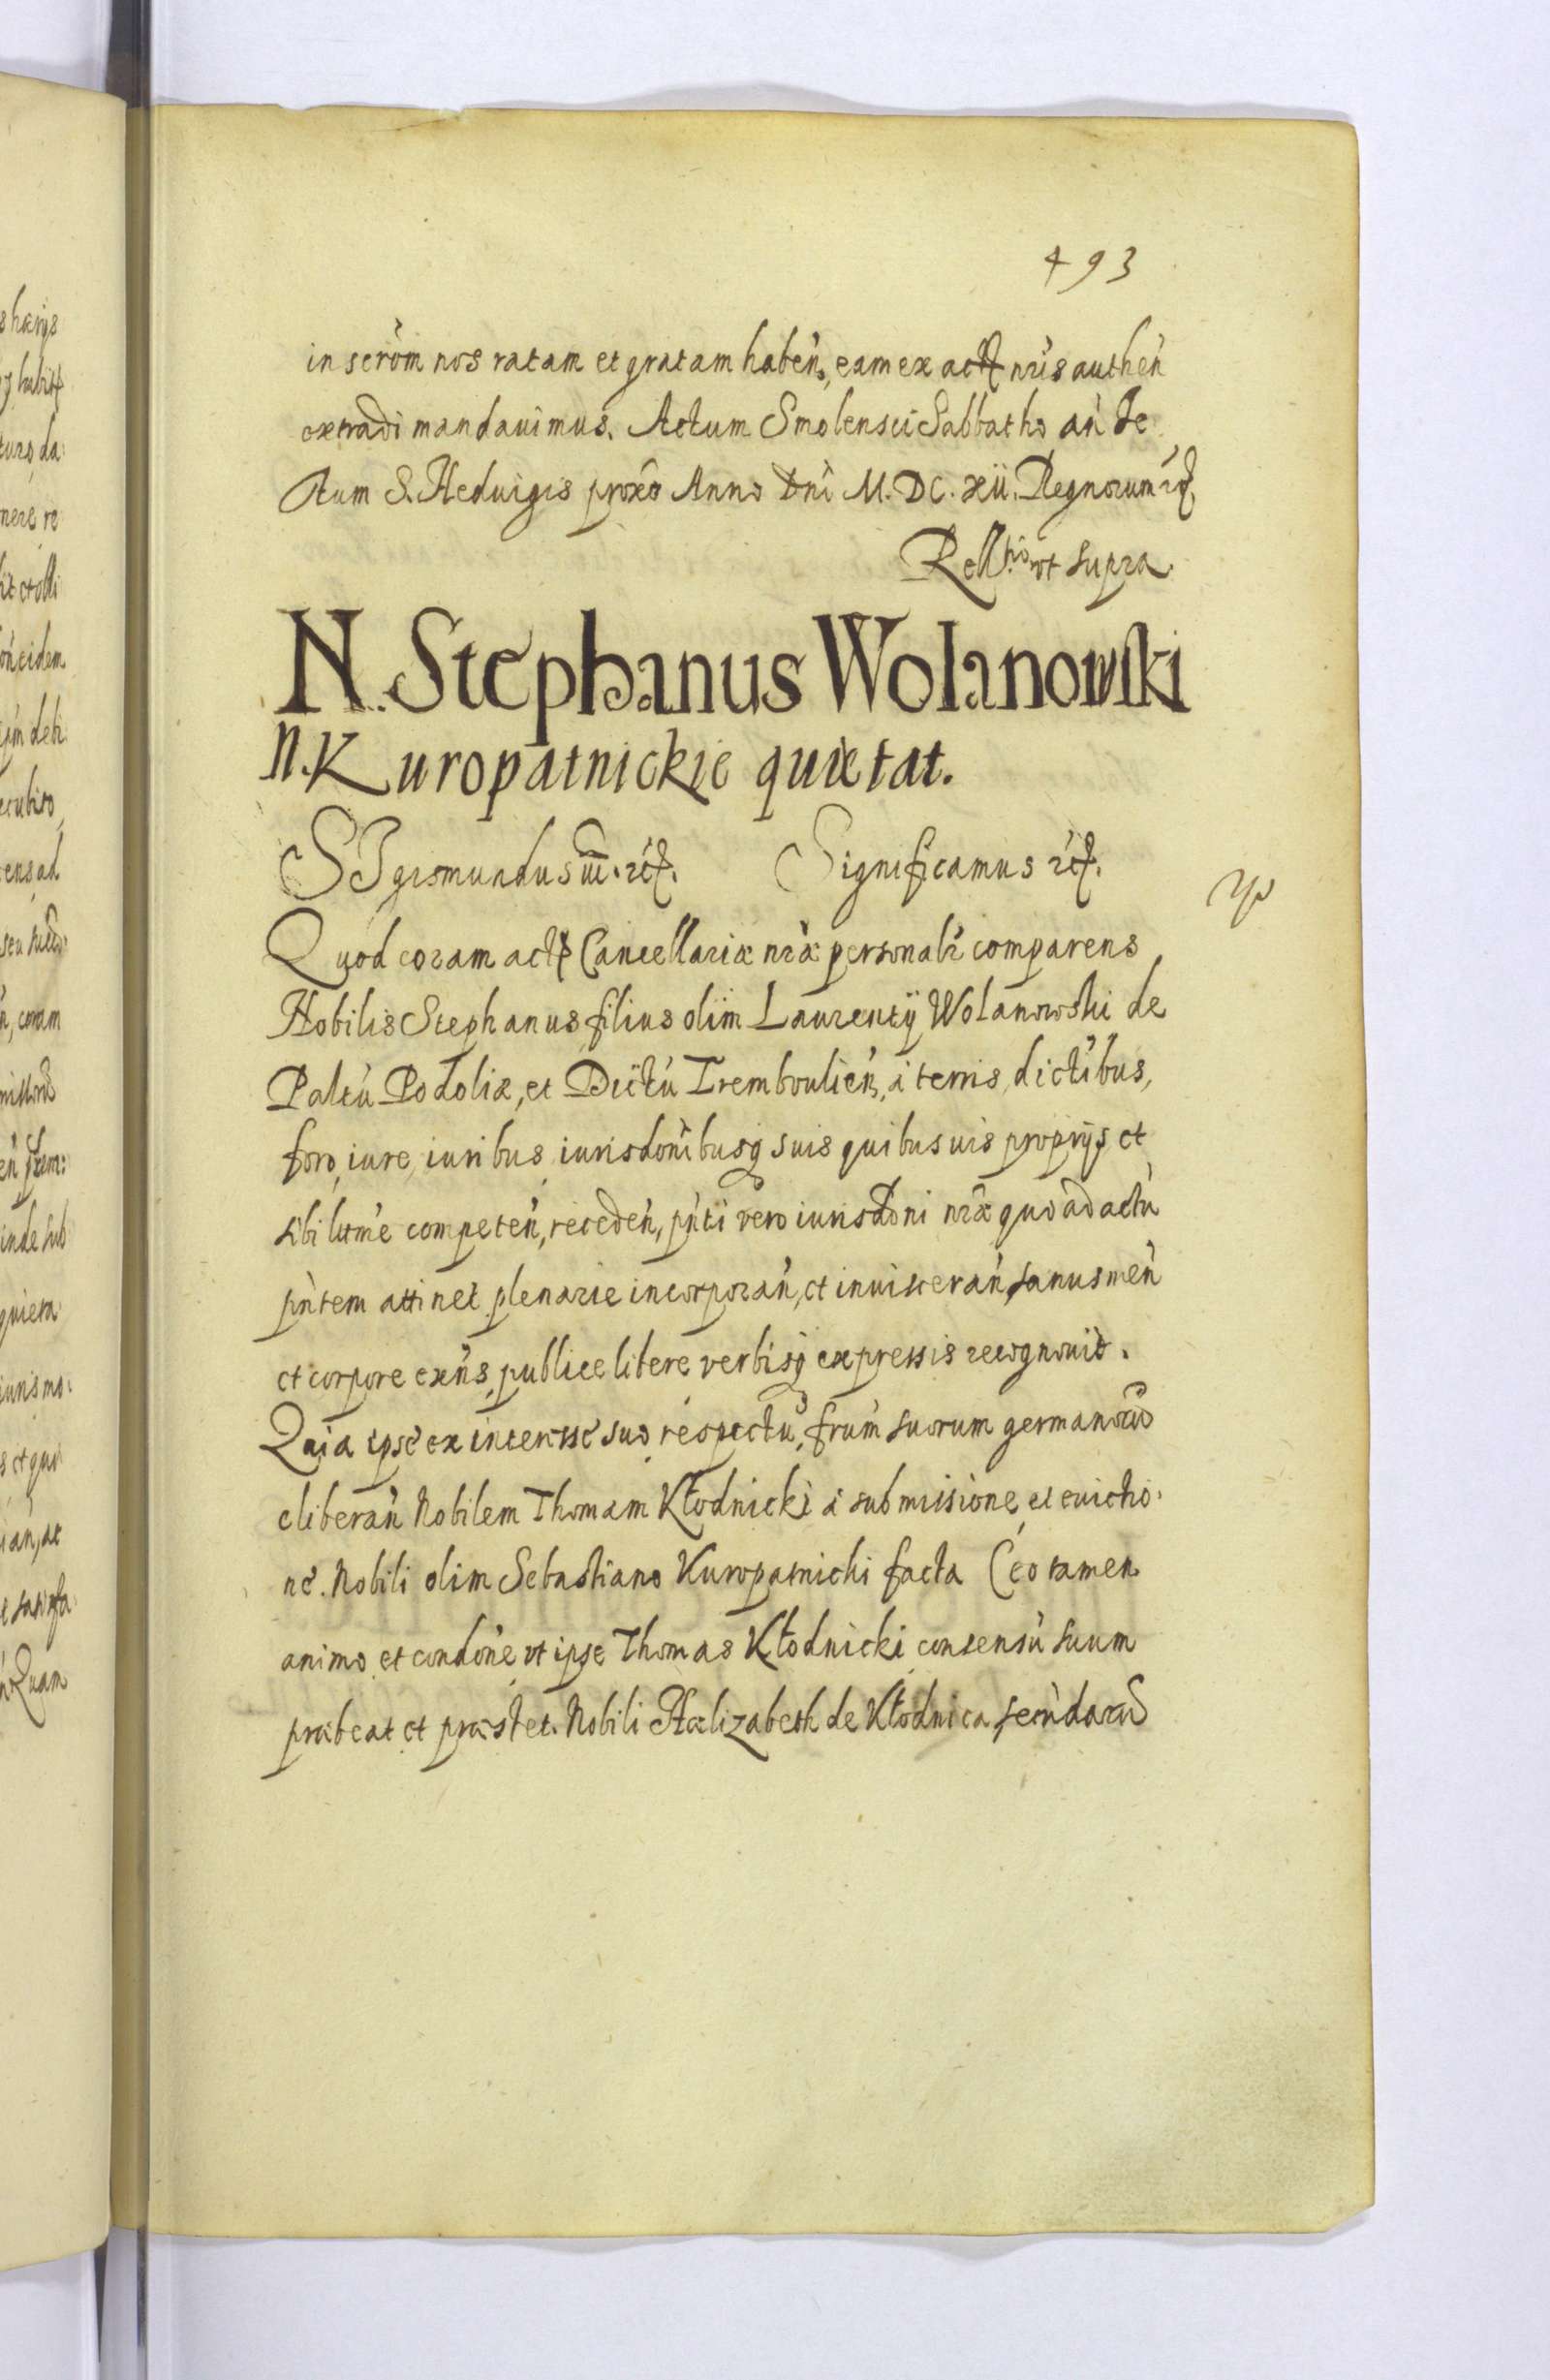 493
in scrōm nos ratam et gratam habeń, eam ex actis nr̃is autheń
extradi mandauimus. Actum Smolensci Sabbatho an̄ fe
stum S. Heduigis proxo Anno Dnī M. DC. xii. Regnorum etc
Rellᵗⁱᵒ ut supra
N. Stephanus Wolanowski
N. Kuropatnickie quietat.
SIgismundus iii. etc. Significamus etc.
Quod coram actis Cancellariæ nr̃æ personalr̃ comparens
Nobilis Stephanus filius olim Laurentij Wolanowski de
Paltū Podoliæ, et Dictū Trembovlień, à terris, dictibus,
foro, iure, iuribus, iurisdonibusq suis quibusuis proprijs et
sibi ltme competeń, recedeń, pn̄ti vero iurisdoni nr̃æ quo ad actū
pn̄tem attinet plenarie incorporań, et inuiscerań, sanus meń
et corpore exn̄s, publice libere verbisq expressis recognouit.
Quia ipse ex interesse suo, respectu, frum suorum germanorū
eliberań Nobilem Thomam Kłodnicki à submissione, et euictio:
ne. Nobili olim Sebastiano Kuropatnicki facta Ceo tamen
animo et condone ut ipse Thomas Kłodnicki consensū suum
præbeat et præstet. Nobili Hælizabeth de Kłodnica, secūdarū